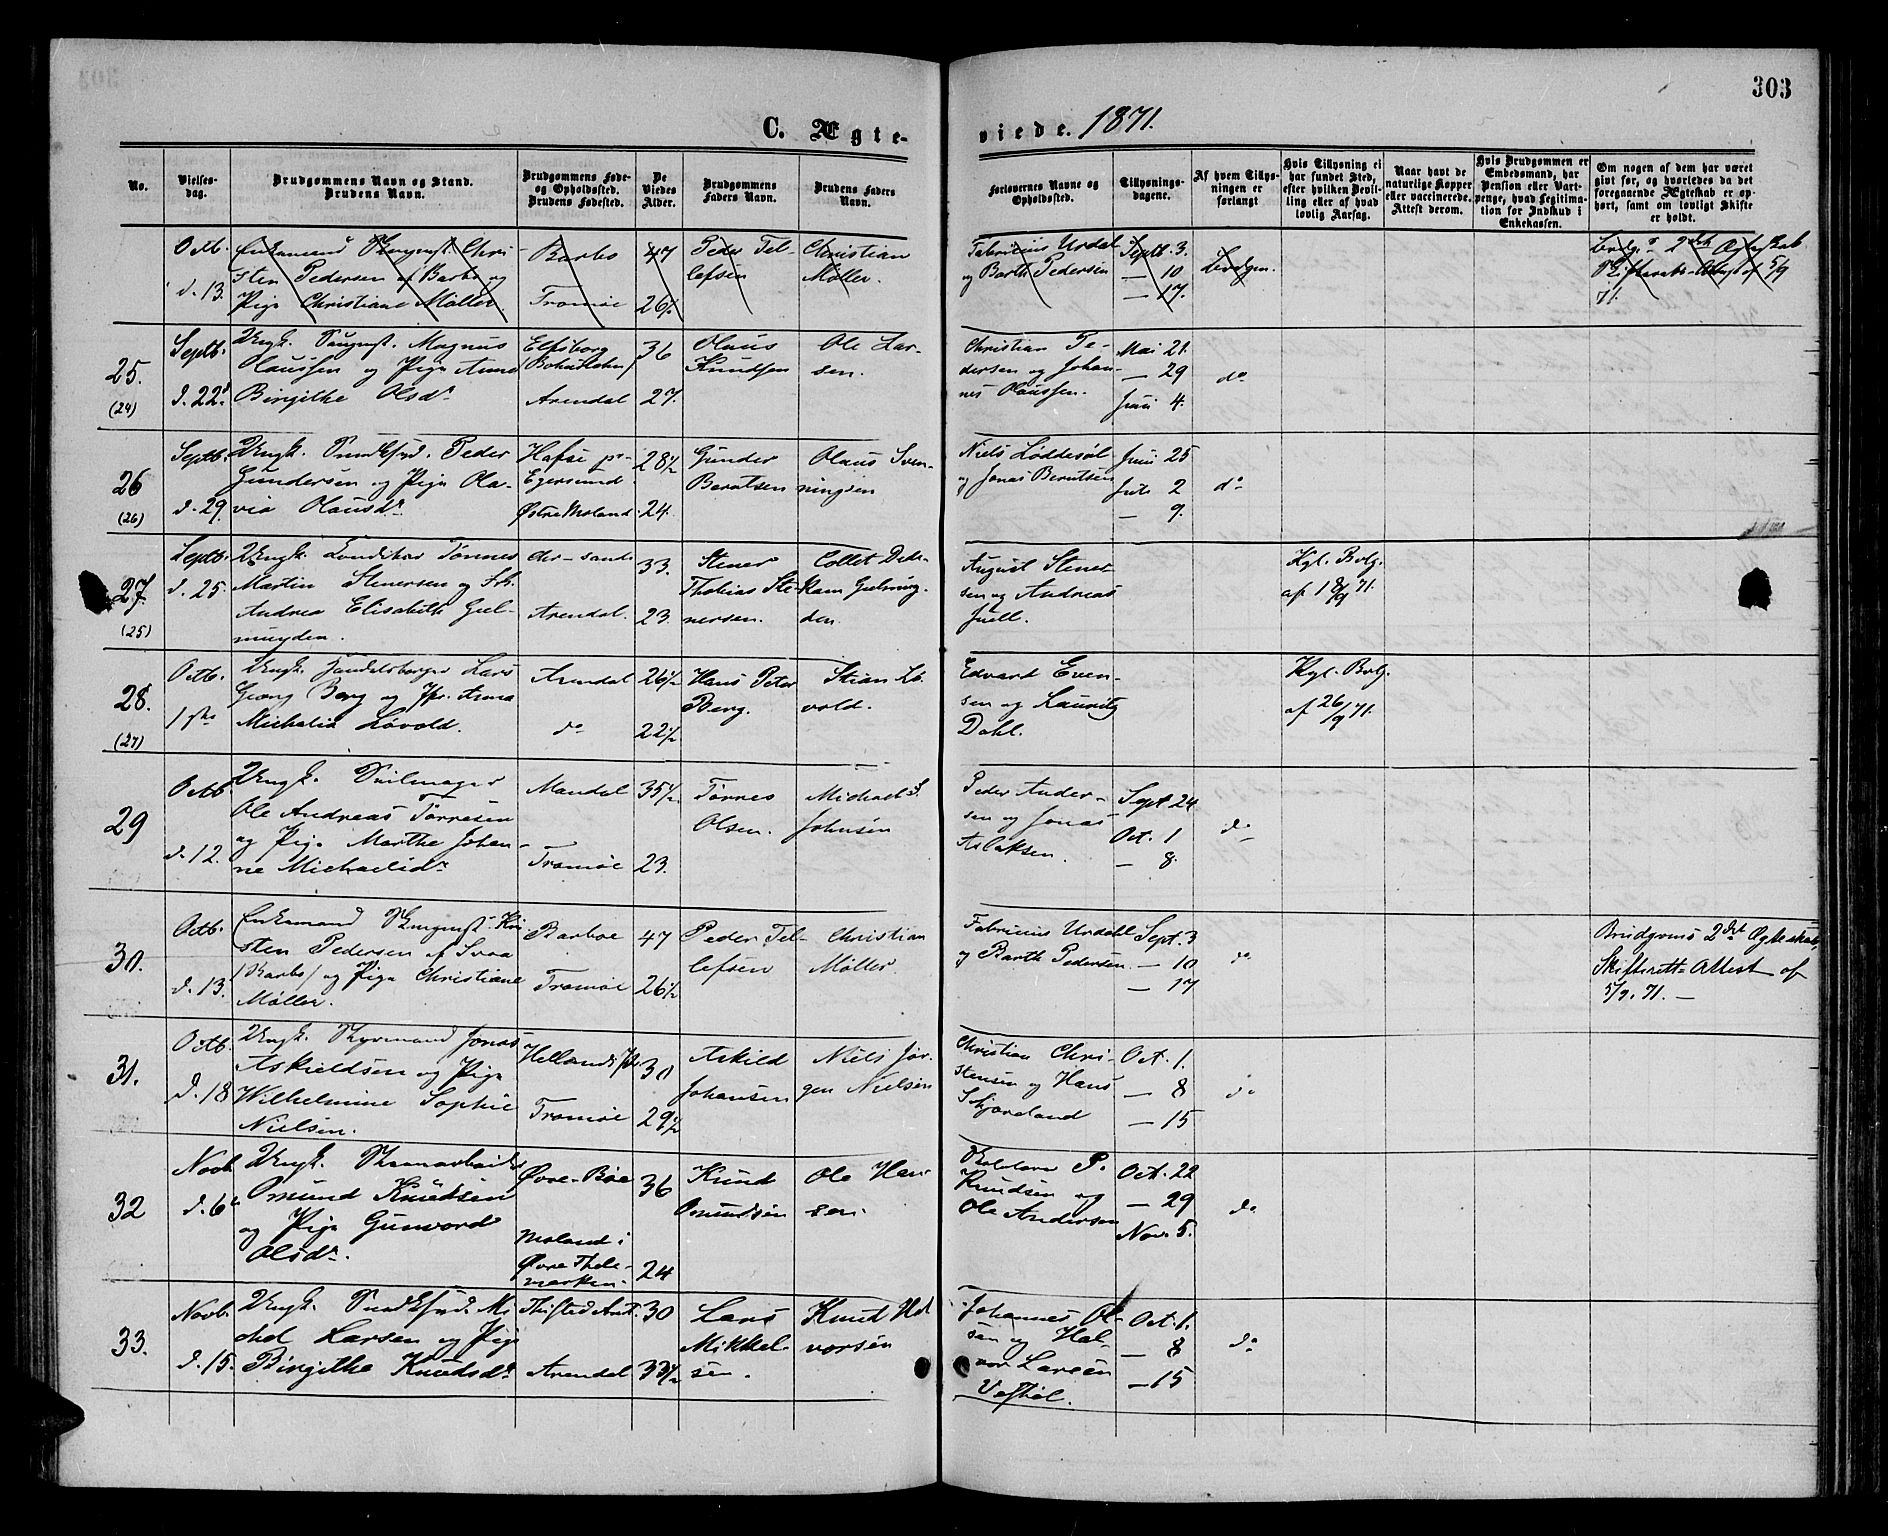 303
C. Ægte-
viede. 1871.
No.
Vielses-
dag.
Brudgommens Navn og Stand.
Brudens Navn.
Brudgommens Føde-
og Opholdssted.
Brudens Fødested.
De
Viedes
Alder.
Brudgommens
Faders Navn.
Brudens Faders
Navn.
Forlovernes Navne og
Opholdssted.
Tillysnings-
dagene.
Af hvem Tillys-
ningen er
forlangt
Hvis Tillysning ei
har fundet Sted,
efter hvilken Bevil-
ling eller af hvad
lovlig Aarsag.
Naar havt de
naturlige Kopper
eller vaccinerede.
Attest derom.
Hvis Brudgommen er
Embedsmand, har
Pension eller Vart-
penge, hvad Legitima-
tion for Indskud i
Enkekassen.
Om nogen af dem har været
gift før, og hvorledes da det
foregaaende Ægteskab er op-
hørt, samt om lovligt Skifte
er holdt.
Octb.
d. 13.
Enkemand Chri-
sten Pedersen af Barbo og
Pige Christiane Møller
Barbo
Tromøe
47
26½
Peder Tel-
lefsen
Christian
Møller.
Fabricius Urdal
og Barth Pedersen
Septb. 3.
— 10
— 17.
Brdgm.
Skifterets-Attest af 5/9
71.
25.
(24)
Septb.
d. 22d
Ungk. Magnus
Olaussen og Pige Anne
Birgithe Olsdr
Elfsborg
Arendal
36
27.
Olaus
Knudsen
Ole Lar-
sen.
Christian Pe-
dersen og Johan-
nes Olaussen.
Mai 21.
— 29
Juni 4.
do
26
(26)
Septb.
d. 29.
Ungk. Peder
Gundersen og Pige Ola-
via Olausdr
Egersund
Østre Moland
28½
24.
Gunder
Berntsen
Olaus Sven-
ningsen
Niels Løddesøl
og Jonas Berntsen
Juni 25
Juli 2
— 9.
do
27.
(25)
Septb.
d. 25.
Ungk. Tønnes
Martin Stenersen og Frk.
Andrea Elisabeth Gul-
Arendal.
33.
23.
Stener
Thobias Ste-
nersen.
Collet
den.
August Stener-
sen og Andreas
Juell.
Kgl. Bvlg.
af 18/9 71.
28.
(27)
Octb.
1ste
Ungk. Handelsborger Lars
Georg Berg og Jfr. Anna
Michalia Løvold.
Arendal
do
26½
22½
Hans Peter
Berg.
Stian Lø-
vold.
Edvard Even-
sen og Lauritz
Dahl.
Kgl. Bvlg.
af 26/9 71.
29
Octb
d. 12.
Ungk. Seilmager
Ole Andreas Tørresen
og Pige Marthe Johan-
ne Michaelsdr
Mandal
Tromøe
35½
23.
Tørres
Olsen.
Michael S.
Johnsen
Peder Ander-
sen og Jonas
Aslaksen.
Sept. 24
Oct. 1
— 8.
do
30.
Octb.
d. 13.
Enkemand
sten Pedersen af
(Barbo) og Pige Christiane
Møller.
Barboe
Tromøe
47
26½
Peder Tel-
lefsen
Christian
Møller
Fabricius Urdahl
og Barth Pedersen.
Sept. 3
— 10
— 17
do
Brudgoms 2det Ægteskab,
Skifterets-Attest af
5/9. 71. —
31.
Octb.
d. 18
Ungk. Styrmand Jonas
Askieldsen og Pige
Wilhelmine Sophie
Nielsen.
Tromøe
30
29½
Askild
Johansen
Niels Jør-
gen Nielsen
Christian Chri-
stensen og Hans
Skjøreland
Oct. 1.
— 8
— 15
do
32
Novb
d. 6
Ungk.
Omund Knudsen
og Pige Gunvord
Olsdr.
Øvre-Bøe
Moland i
Øvre Thele-
marken.
36
24
Knud
Omundsen
Ole Han-
sen.
P.
Knudsen og
Ole Andersen
Oct. 22
— 29
Nov. 5.
do
33.
Novb.
d. 15.
Ungk. Mi-
chel Larsen og Pige
Birgithe Knudsdr
Thisted Amt.
Arendal
30
33½
Lars
Mikkel-
sen.
Knud Hal-
vorsen
Johannes Ol-
sen og Hal-
vor Larsen
Vessøl.
Oct. 1.
— 8
— 15
do